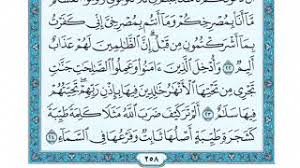 مَّآ أَنَا۠ بِمُصۡرِخِكُمۡ وَمَآ أَنتُم بِمُصۡرِخِيَّ إِنِّي كَفَرۡتُ
بِمَآ أَشۡرَكۡتُمُونِ مِن قَبۡلُۗ إِنَّ ٱلظَّٰلِمِينَ لَهُمۡ عَذَابٌ
أَلِيمٞ ٢٢ وَأُدۡخِلَ ٱلَّذِينَ ءَامَنُواْ وَعَمِلُواْ ٱلصَّٰلِحَٰتِ جَنَّٰتٖ
تَجۡرِي مِن تَحۡتِهَا ٱلۡأَنۡهَٰرُ خَٰلِدِينَ فِيهَا بِإِذۡنِ رَبِّهِمۡۖ تَحِيَّتُهُمۡ
فِيهَا سَلَٰمٌ ٢٣ أَلَمۡ تَرَ كَيۡفَ ضَرَبَ ٱللَّهُ مَثَلٗا كَلِمَةٗ طَيِّبَةٗ
كَشَجَرَةٖ طَيِّبَةٍ أَصۡلُهَا ثَابِتٞ وَفَرۡعُهَا فِي ٱلسَّمَآءِ ٢٤
٢٥٨